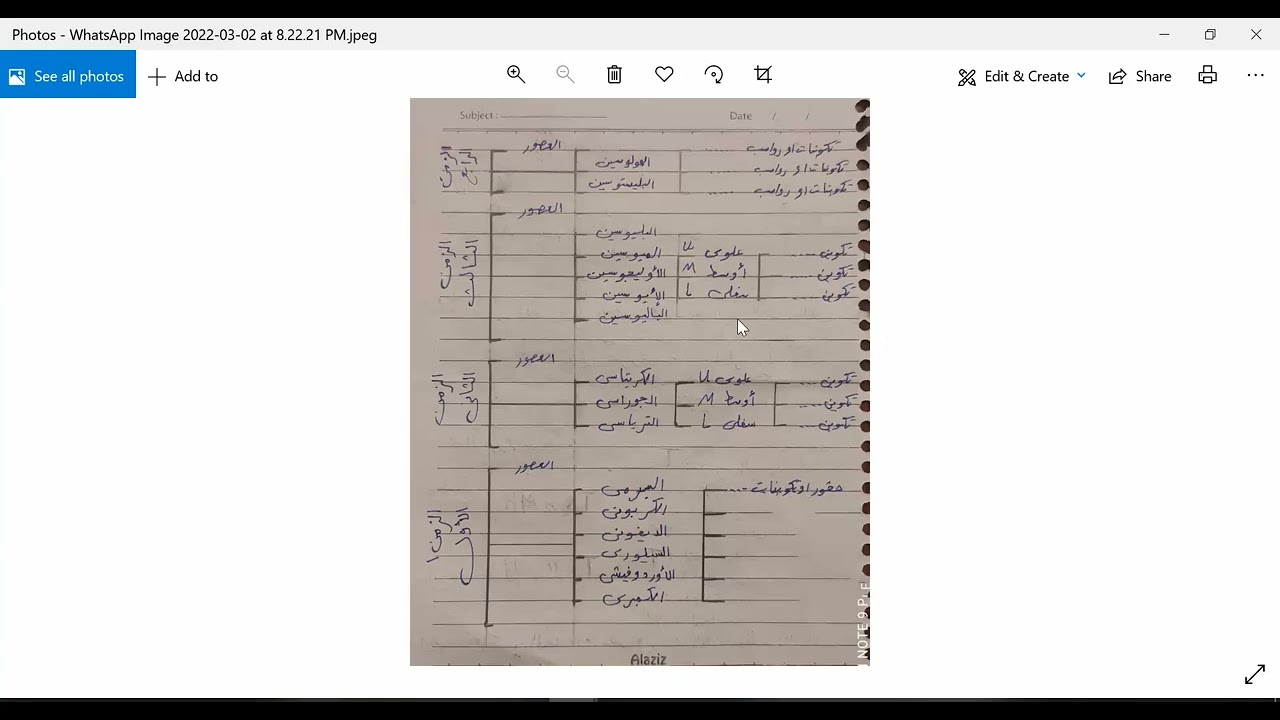 Photos - WhatsApp Image 2022-03-02 at 8.22.21 PM.jpeg
See all photos
Add to
Edit & Create
Share
Subject :
Date / /
الزمن الرابع
العصور
تكوينات او رواسب ......
الهولوسين
تكوينات او رواسب ......
البليستوسين
تكوينات او رواسب ......
الزمن الثالث
العصور
البليوسين
الميوسين علوى U تكوين ......
الأوليجوسين أوسط M تكوين ......
الأيوسين سفلى L تكوين
الباليوسين
الزمن الثانى
العصور
الكريتاسى علوى U تكوين ....
الجوراسى أوسط M تكوين ....
الترياسى سفلى L تكوين ....
الزمن الأول
العصور
البيرمى صخور او تكوينات ...
الكربونى
الديفونى
السيلورى
الأوردوفيشى
الكمبرى
Alaziz
NOTE 9 P